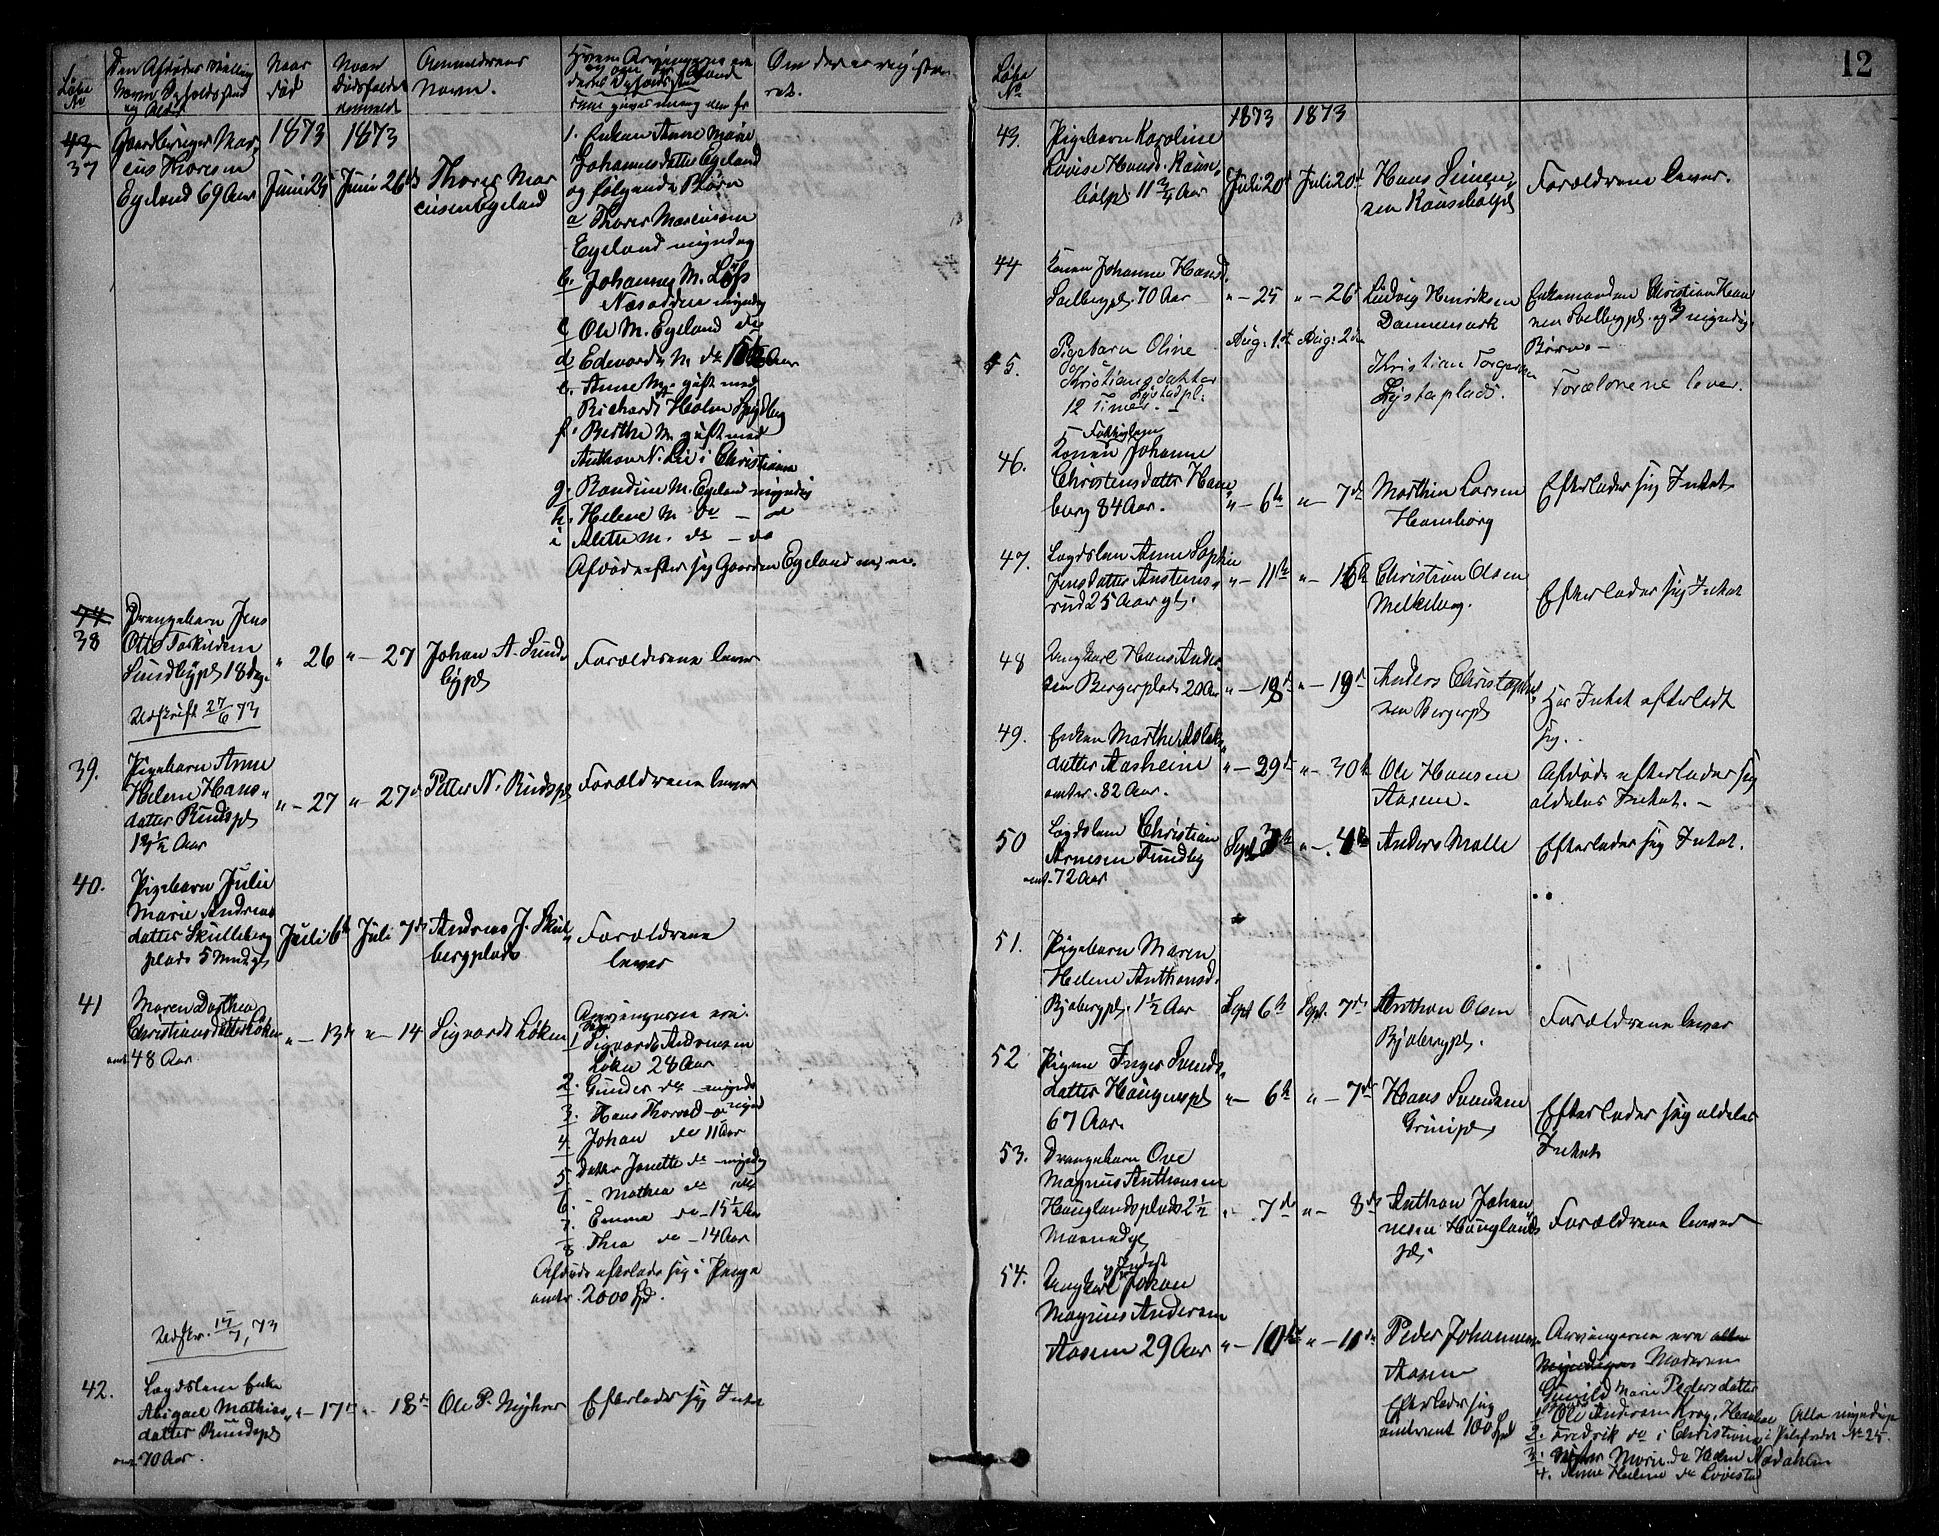 12
Løbe No
Den Afdødes
Navn Opholdssted
og Alder
Naar
død
Naar
Dødsfaldet
anmeldt
Anmelderens
Navn.
Hvem Arvingerne ere
og om
deres Opholdssted
Om der er registre-
ret.
43
37
Gaardbruger Mar-
cus Thoresen
Egeland 69 Aar
1873
Juni 25
1873
Juni 26de
Thores Mar
cusen Egeland
1. Enken Anne Marie
Johannesdatter Egeland
og følgende Børn
a Thores Marcussen
Egeland myndig
b. Johannes M.
Næsodden myndig
c Ole M. Egeland do
d Edvard M. do Aar
e. Anne M. gift med
Richardt Holm
f. Berthe M. gift med
Anthon N. Lie i Christiania
g. Randine M. Egeland myndig
h. Helene M. do - do
i Alette M. do - do
Afdøde efter sig Gaarden Egeland m. m.
74
38
Drengebarn Jens
Otto Torkildsen
Sundbypl 18 Dag.
Udskrift 27/6 73
" 26
" - 27
Johan A. Sund-
bypl
Forældrene lever
39.
Pigebarn Anne
Helene Hans-
datter Rudspl
1½ Aar
" - 27
" 27d
Petter N. Rudspl
Forældrene lever
40.
Pigebarn Julie
Marie Andreas
datter Skulleberg
plads 5 Mndgl
Juli 6te
Juli 7de
Andreas J. Skul-
bergplads
Forældrene
lever
41
Maren Dorthea
Christiansdatter Løken
omtr 48 Aar.
" - 13de
" - 14
Sigvardt Løken
Arvingerne ere.
1 Sigvardt Andreasen
Løken 28 Aar
2. Gunder do - myndig
3. Hans Thorvald - do mynd
4 Johan do 11 Aar
5 Datter Janette do - myndig
6. - Mathea do do
7. Emma do - 15½ Aar
8. Thea do - 14 Aar
Afdøde efterlader sig i Penge
omtr. 2000 Spd.
Udskr. 15/7, 73
42.
Lægdslem Enke
Abigael Mathias-
datter Rundspl
omt. 70 Aar.
" - 17de
" 18de
Ole P. Nyhus
Efterlader sig Intet
Løbe
No
43.
Pigebarn Karoline
Lovise Hansd.
11¾ Aar
1873
Juli 20de
1873
Juli 20d
Hans Simen-
sen
Forældrene lever.
44
Konen Johanne Hansd.
Solbergpl. 70 Aar
" - 25
" - 26
Ludvig Henriksen
Dannemark
Enkemanden Christian Han
sen Solbergpl. og 3 myndig
Børn. -
45.
Pigebarn Oline
Kristiansdatter
Lystadpl.
12 Timer.
Aug. 1st
Aug. 2den
Kristian Torgersen
Lystaplads.
Forældrene lever.
46.
Fattiglem
Konen Johanne
Christensdatter Ham-
borg 84 Aar.
" - 6te
" - 7de
Marthin Larsen
Hamborg
Efterlader sig Intet
47.
Lægdslem Anne Sophie
Jensdatter Anstens-
rud 25 Aar gl.
" - 11te
" - 16te
Christian Olsen
Melkeberg.
Efterlader sig Intet
48
Ungkarl Hans Ander-
sen Bergerplads 20 Aar
" - 18de
" - 19de
Anders Christophe
sen Bergerpl
Har Intet efterladt
sig.
49.
Enken Marthe Aslak-
datter Aasheim
omtr. 82 Aar.
" - 29de
" - 30te
Ole Hansen
Aasen.
Afdøde efterlader sig
aldeles Intet. -
50
Lægdslem Christian
Arnesen Sundby
omt. 72 Aar
Sept 3die
" - 4de
Anders Malle
Efterlader sig Intet.
51.
Pigebarn Maren
Helene Anthonsd.
Bjobergpl. 1½ Aar
Sept 6te
Sept. 7de
Anthon Olsen
Bjobergpl.
Forældrene lever
52
Pigen Inger Svends-
datter Haugenspl
67 Aar.
" - 6te
" - 7de
Hans Svendsen
Grinipl
Efterlader sig aldeles
Intet
53.
Drengebarn Ove
Magnus Anthonsen
Hauglandsplads 2½
Maanedgl
" - 7de
" - 8de
Anthon Johan
nesen Hauglands
pl.
Forældrene lever
54.
Ungkarl Johan
Magnus Andersen
Aasen 29 Aar
" - 10de
" - 11de
Peder Johannesen
Aasen
Efterlader sig
omtrent 100 Spd
Arvingerne ere alle
Myndige Moderen
Gunild Marie Pedersdatter
1 Ole Andersen Krog, Alle myndige
2. Fredrik do i Christiania, No 25.
3. Søster Marie do Heden Nedahlen
4. Anne Helene do Lovestad